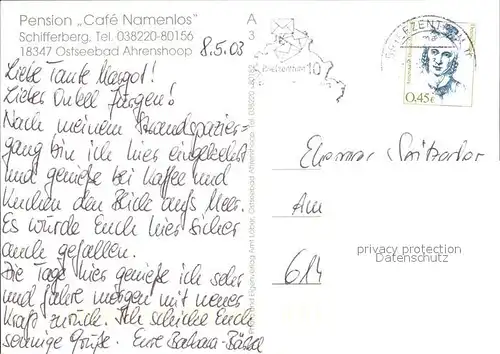 Pension „Café Namenlos"
Schifferberg, Tel. 038220-80156
18347 Ostseebad Ahrenshoop
8.5.03
A
3
Liebe Tante Margot!
Lieber Onkel Jürgen!
Nach meinem Strandspazier=
gang bin ich hier eingekehrt
und genieße bei Kaffee und
Kuchen den Blick aufs Meer.
Es würde Euch hier sicher
auch gefallen.
Die Tage hier genieße ich sehr
und fahre morgen mit neuer
Kraft zurück. Ich schicke Euch
sonnige Grüße. Eure Barbara-Bärbel
Briefzentrum 10
BRIEFZENTRUM
0,45€
Ehepaar
Am
614
privacy protection
Datenschutz